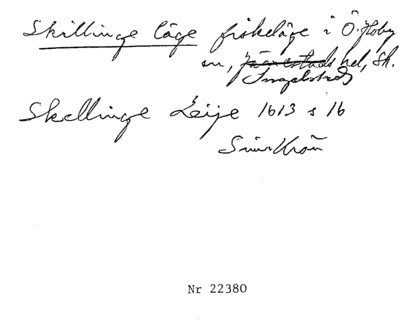 Skillinge läge fiskeläge i Ö. Hoby
sn, järrestads hd, Sk.
Ingelstads
Skellinge Leije 1613 s 16
Nr 22380